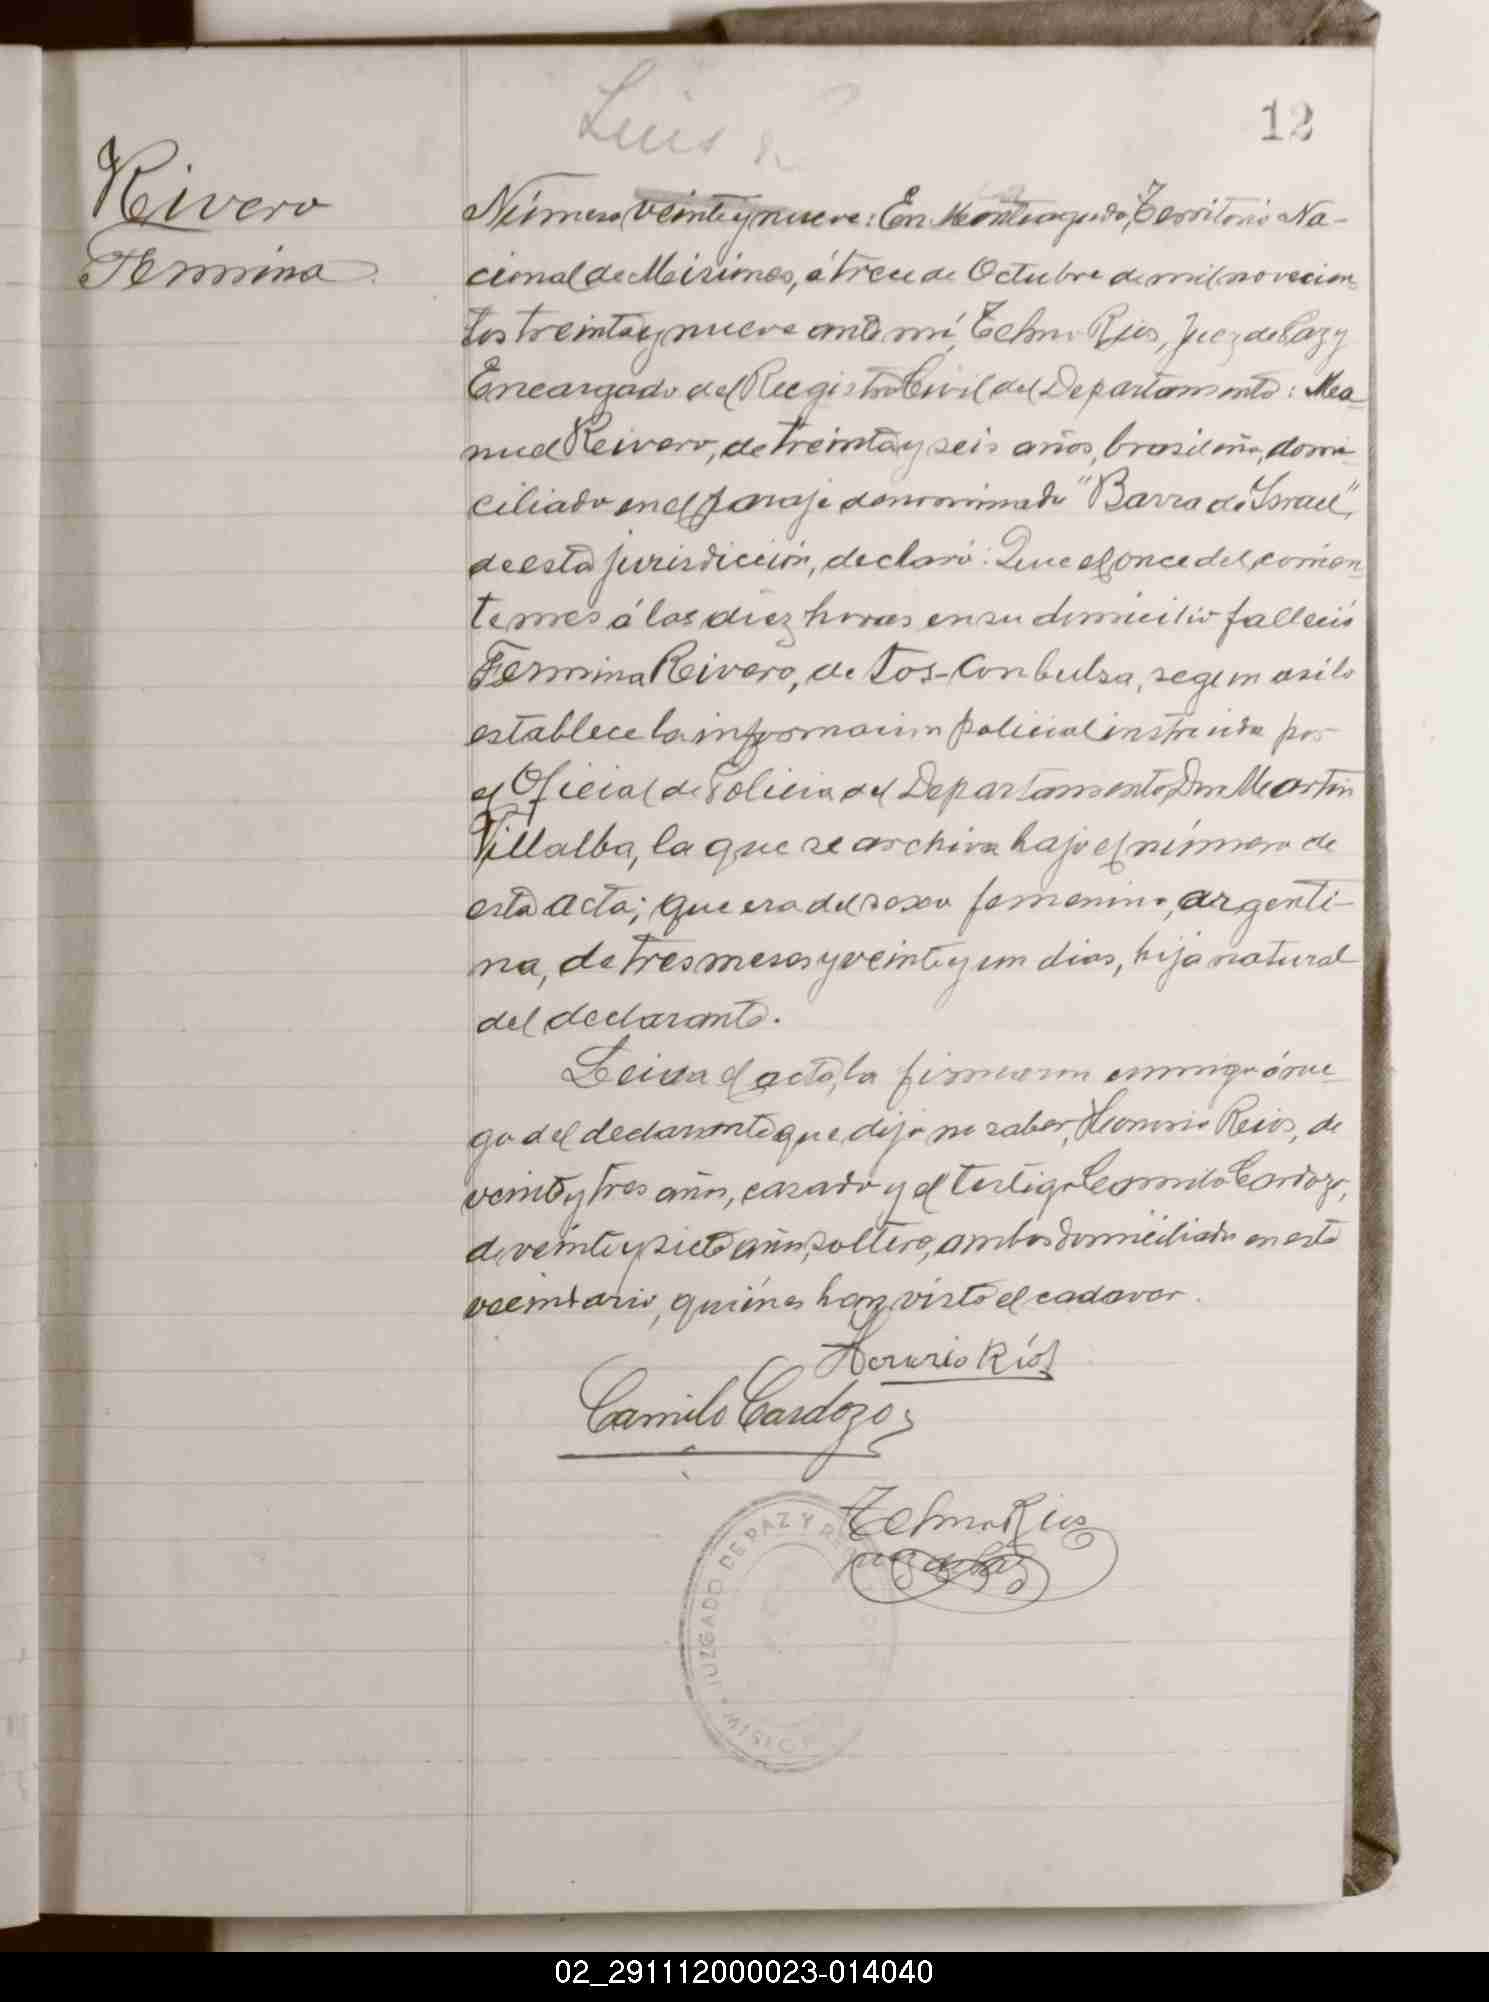 Luis
12
Rivero
Fermina
Número veinte y nueve: En Monteagudo, Territorio Na-
cional de Misiones, á trece de Octubre de mil novecien-
tos treinta y nueve ante mí, Telmo Rios, Juez de Paz y
Encargado del Registro Civil del Departamento: Ma-
nuel Rivero, de treinta y seis años, brasileño, domi-
ciliado en el paraje denominado "Barra de Israel",
de esta jurisdicción, declaró: Que el once del corrien-
te mes á las diez horas en su domicilio falleció
Fermina Rivero, de tos-conbulsa, segun asi lo
establece la informacion policial instruida por
el Oficial de Policia del Departamento Don Martin
Villalba, la que se archiva bajo el número de
esta acta; que era del sexo femenino, argenti-
na, de tres meses y veinte y un dias, hija natural
del declarante.
Leida el acta, la firmaron conmigo á rue-
go del declarante que dijo no saber, Honorio Rios, de
veinte y tres años, casado y el testigo Camilo Cardozo,
de veinte y siete años, soltero, ambos domiciliado en este
vecindario, quiénes han visto el cadaver.
Honorio Ríos
Camilo Cardozo
Telmo Rios
Juez de Paz
JUZGADO DE PAZ Y
MISIO
02_291112000023-014040